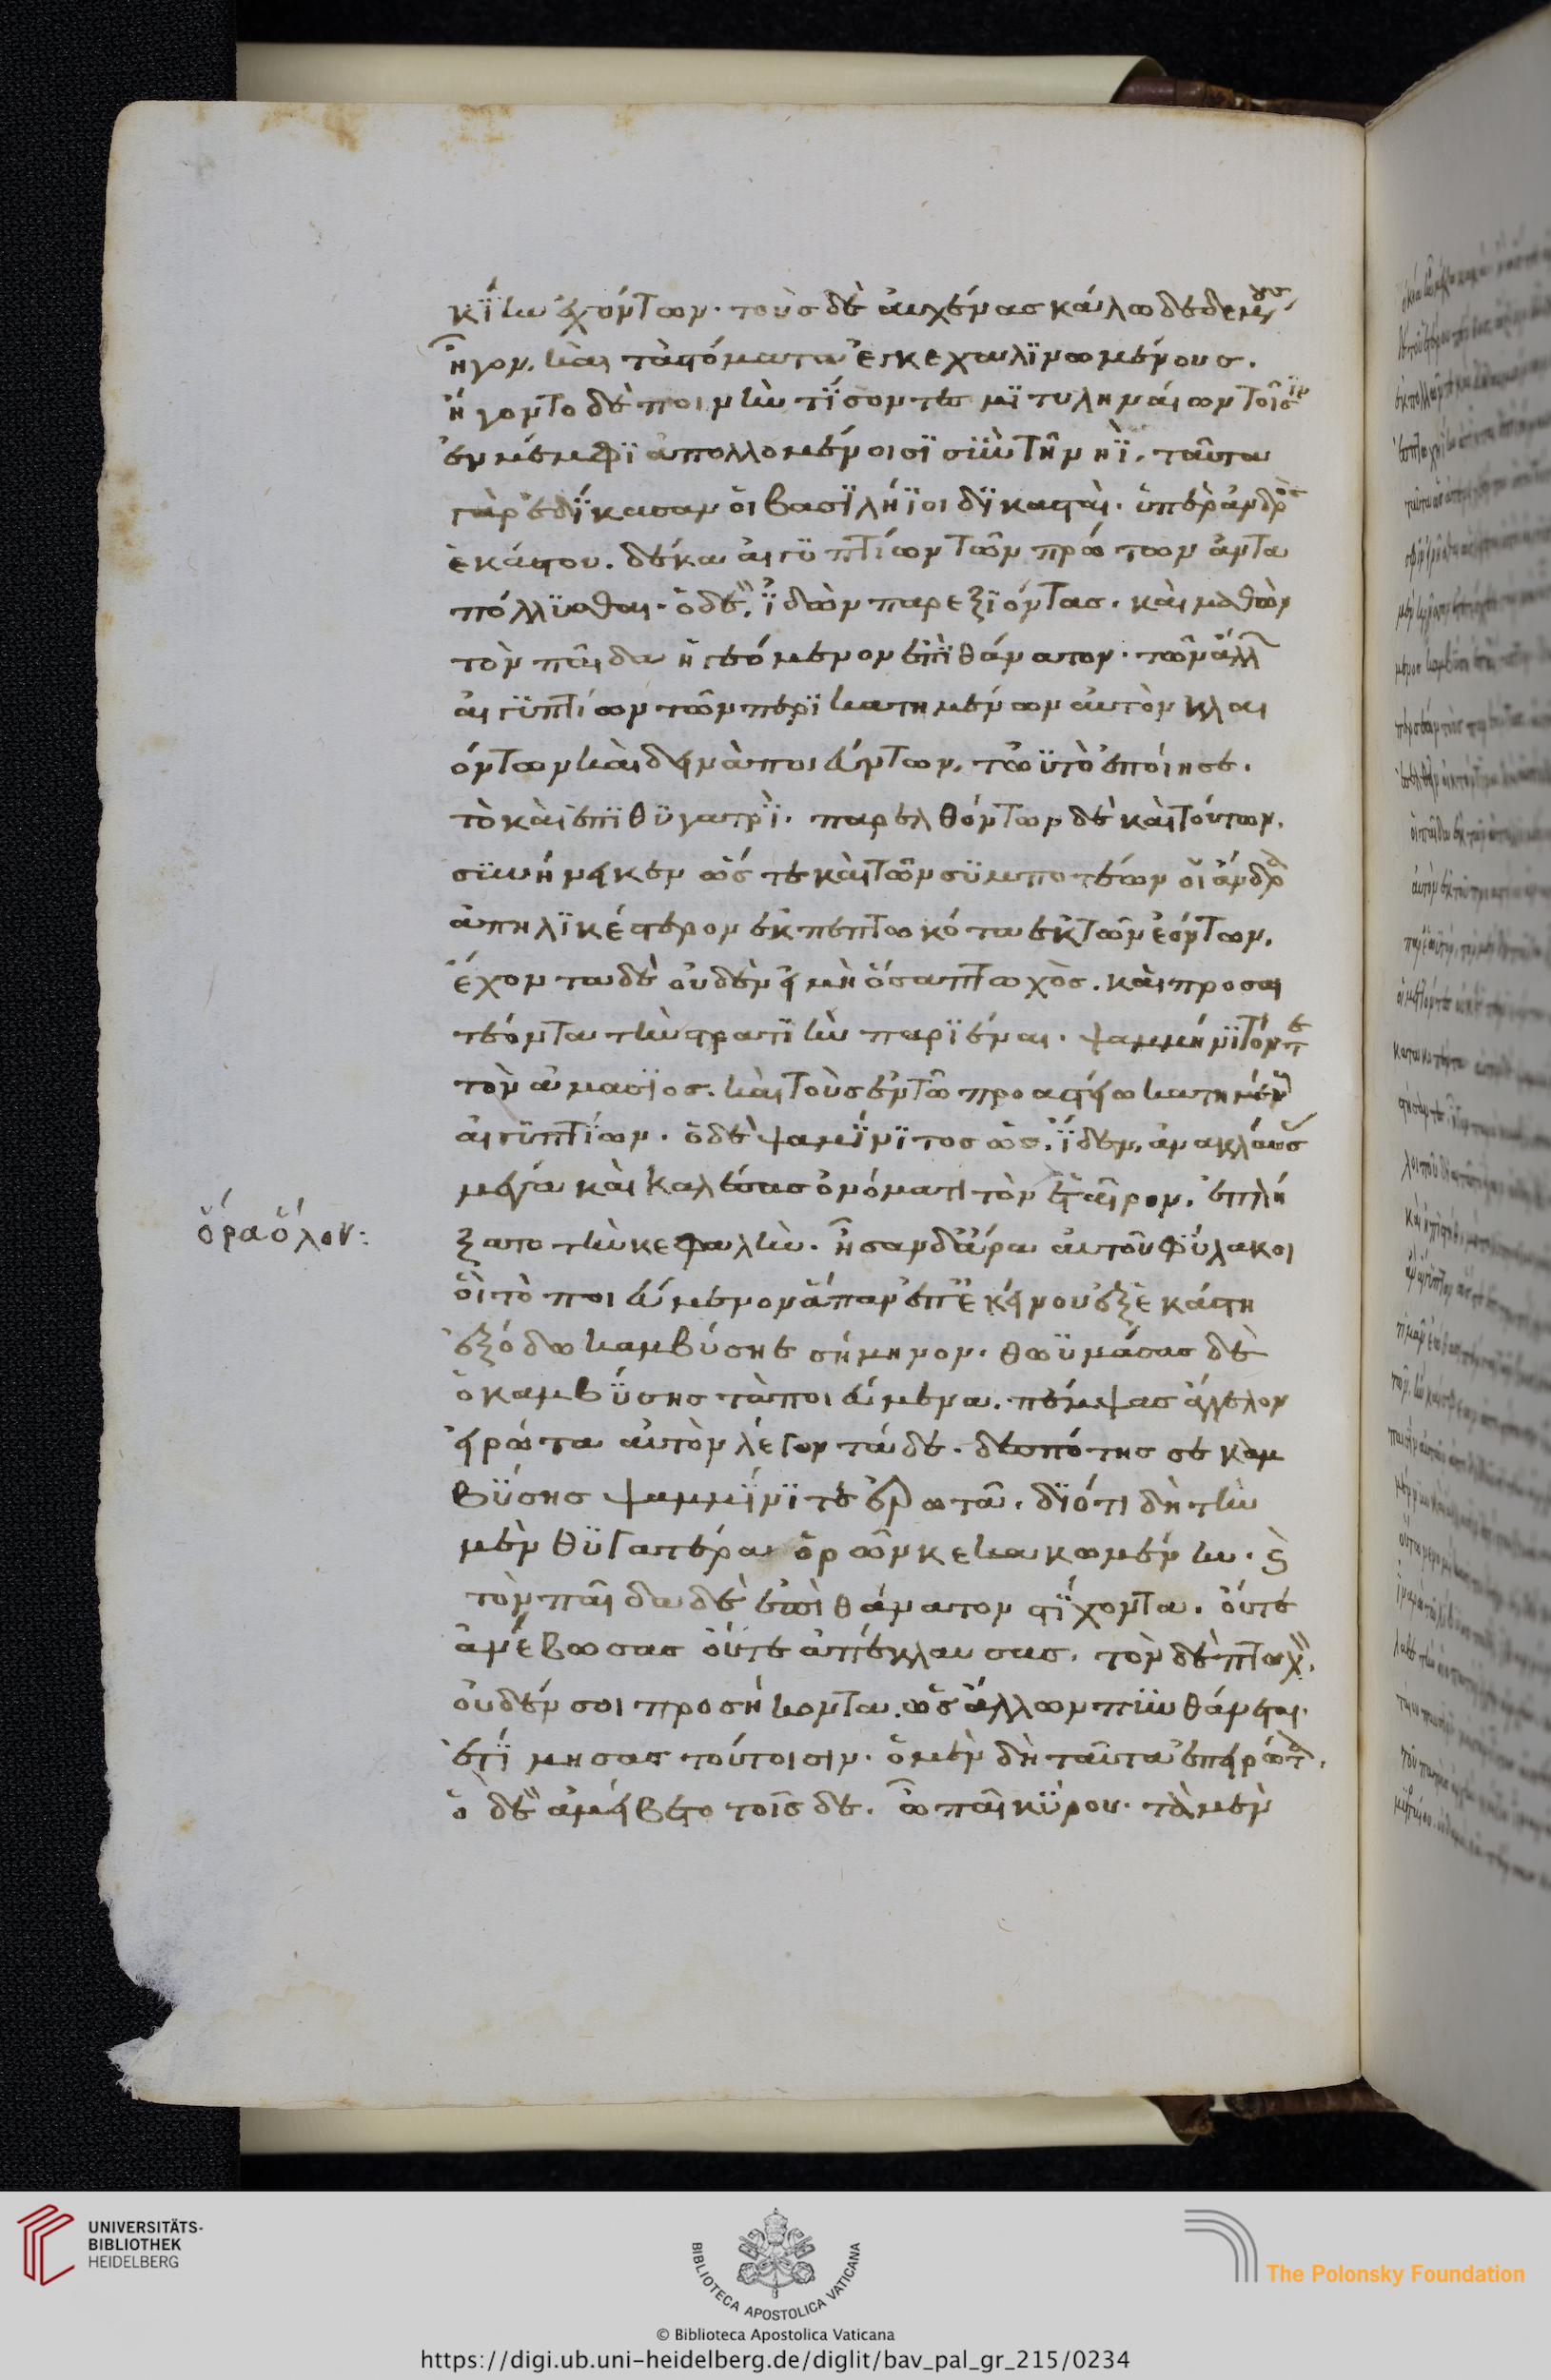 κΐην ἐχόντων. τοὺς δὲ ἀυχένας κάλω δεδεμένους
ἦγον. καὶ τὰ στόματα ἐγκεχαλϊνωμένους.
ἤγοντο δὲ ποινὴν τΐσοντες μϊτυληναίων τοῖσιν
ἐν μέμφϊ ἀπολλομένοισϊ σὺν τῆ νηῒ. ταῦτα
γὰρ ἐδΐκασαν ὁι βασϊλήϊοι δϊκασταὶ. ὑπὲρ ἀνδρὸς
ἑκάστου. δέκα ἀιγϋπτίων τῶν πρώτων ἀντα
πόλλϋσθαι. ὁ δὲ, ἰ̈δὼν παρεξϊόντας. καὶ μαθὼν
τὸν παῖδα ἡγεόμενον ἐπῒ θάνατον. τῶν ἄλλων
ἀιγϋπτίων τῶν περϊκατημένων ἀυτὸν κλαι
όντων καὶ δεινὰ ποιεύντων. τὠϋτὸ ἐποίησε.
τὸ καὶ ἐπῒ θϋγατρῒ. παρελθόντων δὲ καὶ τούτων.
σϋνήνεικεν ὥστε καὶ τῶν σϋμποτέων ὁι ἄνδρα
ἀπηλϊκέστερον ἐκπεπτωκότα ἐκ τῶν ἐόντων.
ἔχοντα δὲ ὀυδὲν εἰ μὴ ὅσα πτωχὸς. καὶ προσαι
τέοντα τὴν στρατϊὴν παρϊέναι. ψαμμήνϊτόν τε
τὸν ἀμασϊος. καὶ τοὺς ἐν τῶ προαστείω κατημένους
ἀιγϋπτίων. ὁ δὲ ψαμΐνϊτος ὡς, ἴ̈δεν, ἀνακλάυσας
μέγα καὶ καλέσας ὀνόματι τὸν ἑταῖρον. ἐπλή
ξατο τὴν κεφαλὴν. ἦσαν δ' ἄρα ἀυτοῦ φύλακοι
ὁὶ τὸ ποιεύμενον ἅπαν ἐπ' ἐκείνου ἐξ ἑκάστη
ἐξόδω καμβύση ἐσήμηνον. θωϋμάσας δὲ
ὁ καμβΰσης τὰ ποιεύμενα. πέμψας ἄγγελον
εἰρώτα ἀυτὸν λέγων τάδε. δεσπότης σε καμ
βΰσης ψαμμΐνϊτε ἐρωτᾶ. δϊότι δὴ τὴν
μὲν θϋγατέρα ὁρῶν κεκακωμένην. καὶ
τὸν παῖδα δὲ ἐπὶ θάνατον στΐχοντα. ὄυτε
ἀνέβωσας ὄυτε ἀπέκλαυσας. τὸν δὲ πτωχὸν,
ὀυδέν σοι προσήκοντα. ὡς ἄλλων πϋνθάνεται.
ἐτΐμησας τούτοισιν. ὁ μὲν δὴ ταῦτα ἐπειρώτα.
ὁ δὲ ἀμείβετο τοῖσδε. ὦ παῖ κΰρου. τὰ μὲν
ὅρα ὅλον:
UNIVERSITÄTS-
BIBLIOTHEK
HEIDELBERG
BIBLIOTECA APOSTOLICA VATICANA
The Polonsky Foundation
© Biblioteca Apostolica Vaticana
https://digi.ub.uni-heidelberg.de/diglit/bav_pal_gr_215/0234